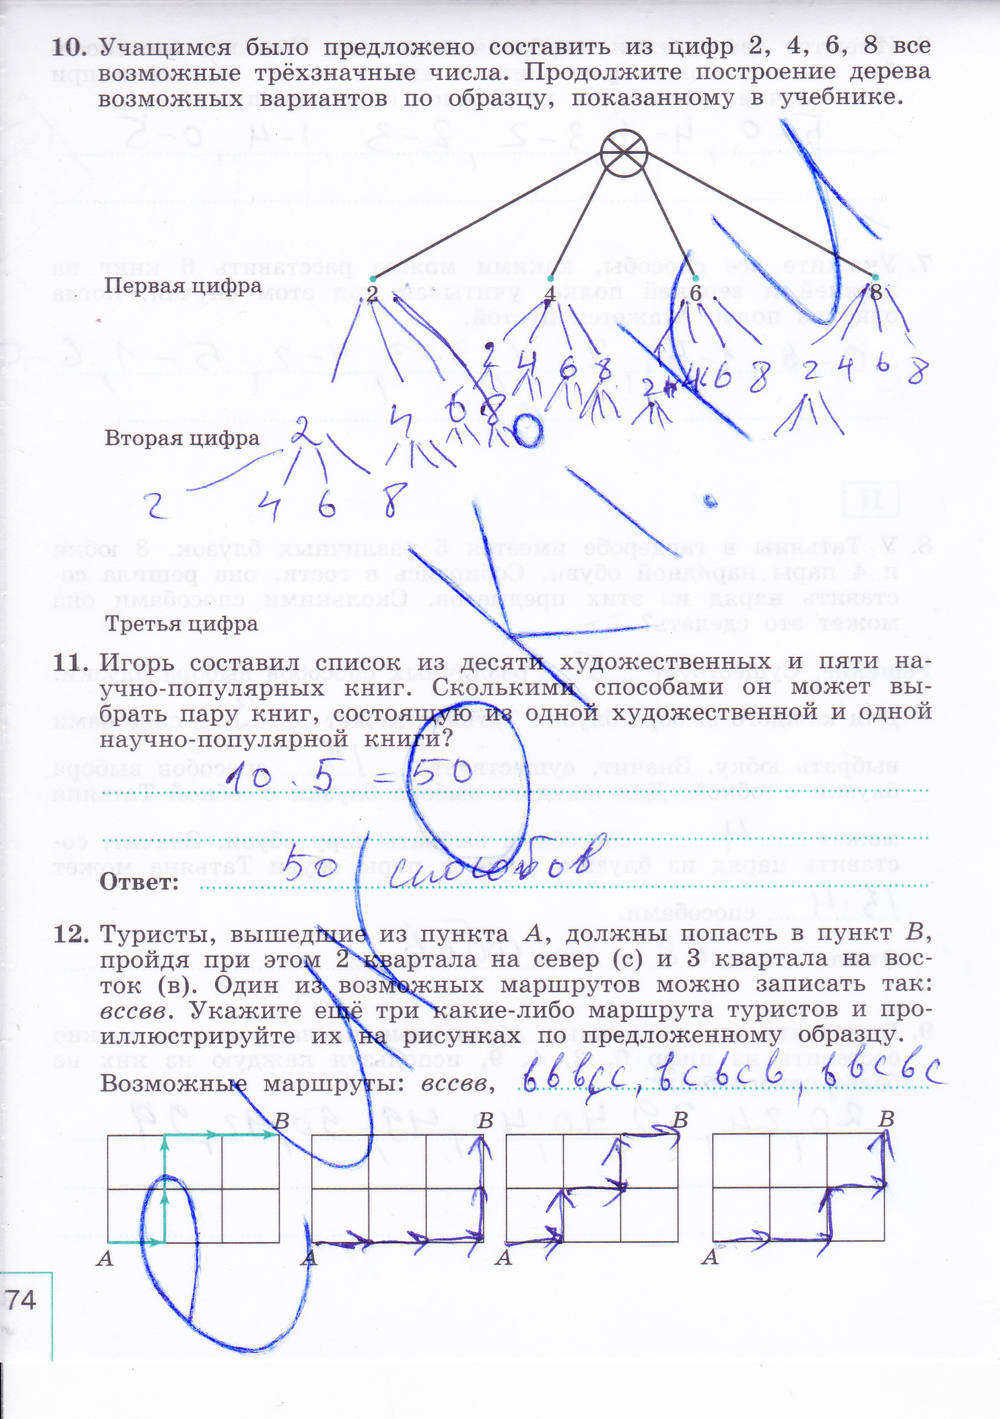 10. Учащимся было предложено составить из цифр 2, 4, 6, 8 все
возможные трёхзначные числа. Продолжите построение дерева
возможных вариантов по образцу, показанному в учебнике.
Первая цифра 2 4 6 8
2 4 6 8 2 4 6 8 2 4 6 8
Вторая цифра 2 4 6 8
2 4 6 8
Третья цифра
11. Игорь составил список из десяти художественных и пяти на-
учно-популярных книг. Сколькими способами он может вы-
брать пару книг, состоящую из одной художественной и одной
научно-популярной книги?
10 5 = 50
Ответ: 50 способов
12. Туристы, вышедшие из пункта A, должны попасть в пункт B,
пройдя при этом 2 квартала на север (с) и 3 квартала на вос-
ток (в). Один из возможных маршрутов можно записать так:
вссвв. Укажите ещё три какие-либо маршрута туристов и про-
иллюстрируйте их на рисунках по предложенному образцу.
Возможные маршруты: вссвв, вввсс, всвсв, ввсвс
B B B B
A A A A
74